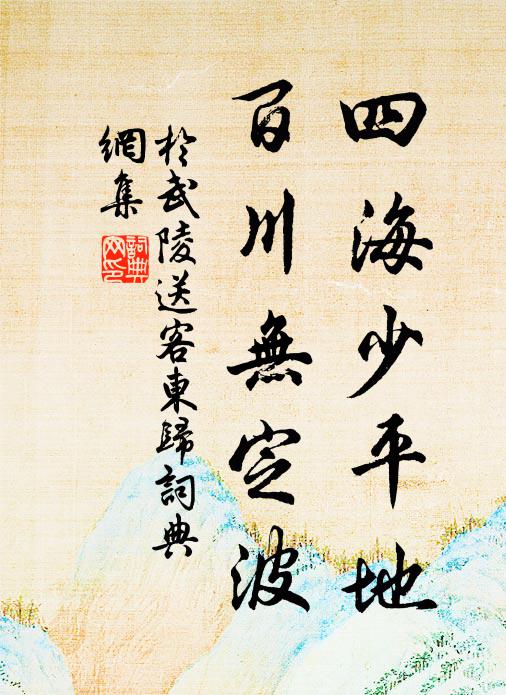 四海少平地
百川無定波
於武陵送客東歸詞典
網集
詞典
网印